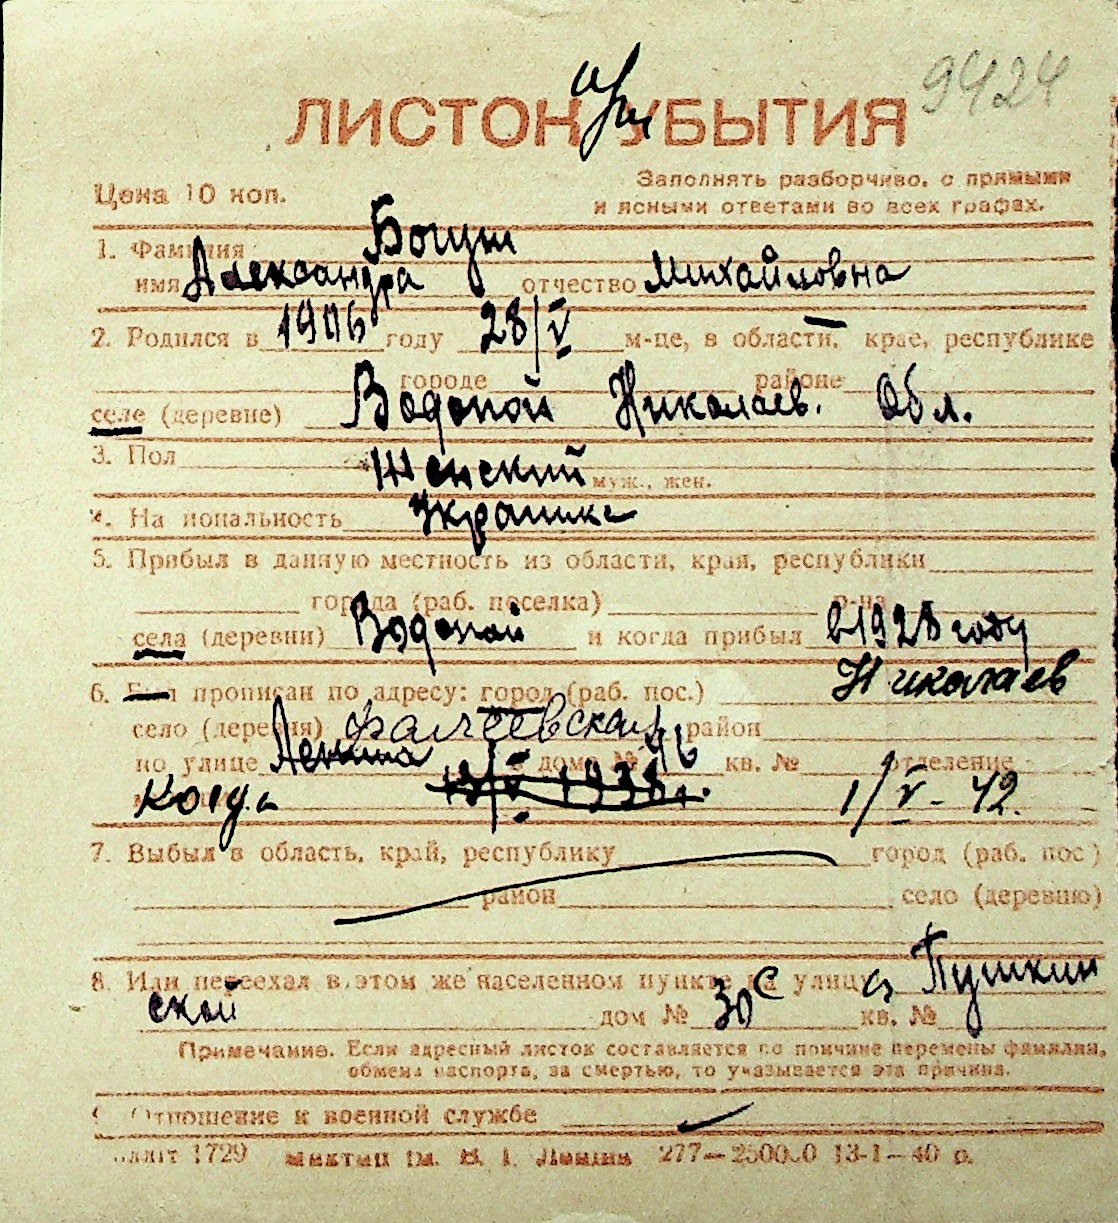 9424
ЛИСТОК при УБЫТИЯ
Цена 10 коп.
Заполнять разборчиво, с прямыми
и ясными ответами во всех графах.
1. Фамилия Богуш
имя Александра отчество Михайловна
2. Родился в 1906 году 28/V м-це, в области, крае, республике
городе районе
селе (деревне) Водопой Николаев. Обл.
3. Пол Женский муж., жен.
4. На иональность Украинка
5. Прибыл в данную местность из области, края, республики
города (раб. поселка) р-на
села (деревни) Водопой и когда прибыл в 1928 году
6. Был прописан по адресу: город (раб. пос.) Николаев
село (деревня) Фалеевская район
по улице Ленина дом № 46 кв. № отделение
Когда 13/V 1938г. 1/V - 42.
7. Выбыл в область, край, республику город (раб. пос)
район село (деревню)
8. Или переехал в этом же населенном пункте на улицу с Пушкин
ской дом № 30 кв. №
Примечание. Если адресный листок составляется по причине перемены фамилии,
обмена паспорта, за смертью, то указывается эта причина.
9. Отношение к военной службе
1729 им. В. И. Ленина 277—250000 13-1—40 р.